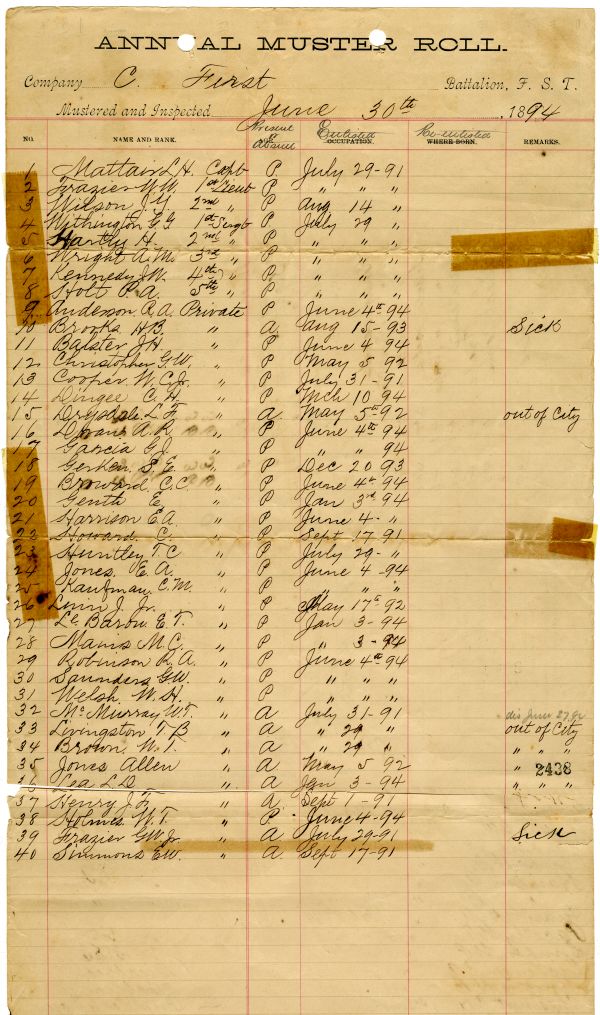 ANNUAL MUSTER ROLL.
Company C. First Battalion, F. S. T.
Mustered and Inspected June 30th, 1894
NO. NAME AND RANK. Present or Absent Enlisted OCCUPATION. Re-enlisted WHERE BORN. REMARKS.
1 Mattair L. H. Capt P July 29-91
2 Frazier W.W. 1st Lieut P " " "
3 Wilson J.Y. 2nd " P Aug 14 "
4 Withington G G 1st Sergt P July 29 "
5 Hartly H. 2nd " P " " "
6 Wright A. M. 3rd " P " " "
7 Kennedy J.W. 4th " P " " "
8 Holt P. A. 5th " P " " "
9 Anderson A. A. Private P June 4th 94
10 Brooks H B. " A Aug 15-93 Sick
11 Balster J H " P June 4 94
12 Christopher G.W. " P May 5 92
13 Cooper W. C. Jr. " P July 31-91
14 Dingee C. H. " P Mch 10 94
15 Drysdale L. F. " A May 5th-92 out of City
16 A. R. " P June 4th 94
17 Garcia G. J. " P " " 94
18 Gerken S. E. " P Dec 20 93
19 Broward C. C. " P June 4th 94
20 Genth E. " P Jan 3rd 94
21 Harrison E. A. " P June 4- "
22 Howard C. " P Sept 17 91
23 Huntley T C " P July 29- "
24 Jones E. A. " P June 4-94
25 Kaufman C. M. " P " " "
26 J. Jr. " P May 17th 92
27 Le Baron E. T. " P Jan 3-94
28 M. C. " P " 3-94
29 Robinson R. A. " P June 4th 94
30 Saunders G.W. " P " " "
31 Welsh W. H. " P " " "
32 McMurray W. T. " A July 31-91
33 Livingston T. B " A " 29 " out of City
34 Brown W. T. " A " 29 " " " "
35 Jones Allen " A May 5 92 " 2438
36 Lea L. D. " A Jan 3-94 " " "
37 Henry J. F. " A Sept 1-91
38 Holmes W. T. " P June 4-94
39 Frazier G.W. Jr. " A July 29-91 Sick
40 Simmons E.W. " A Sept 17-91